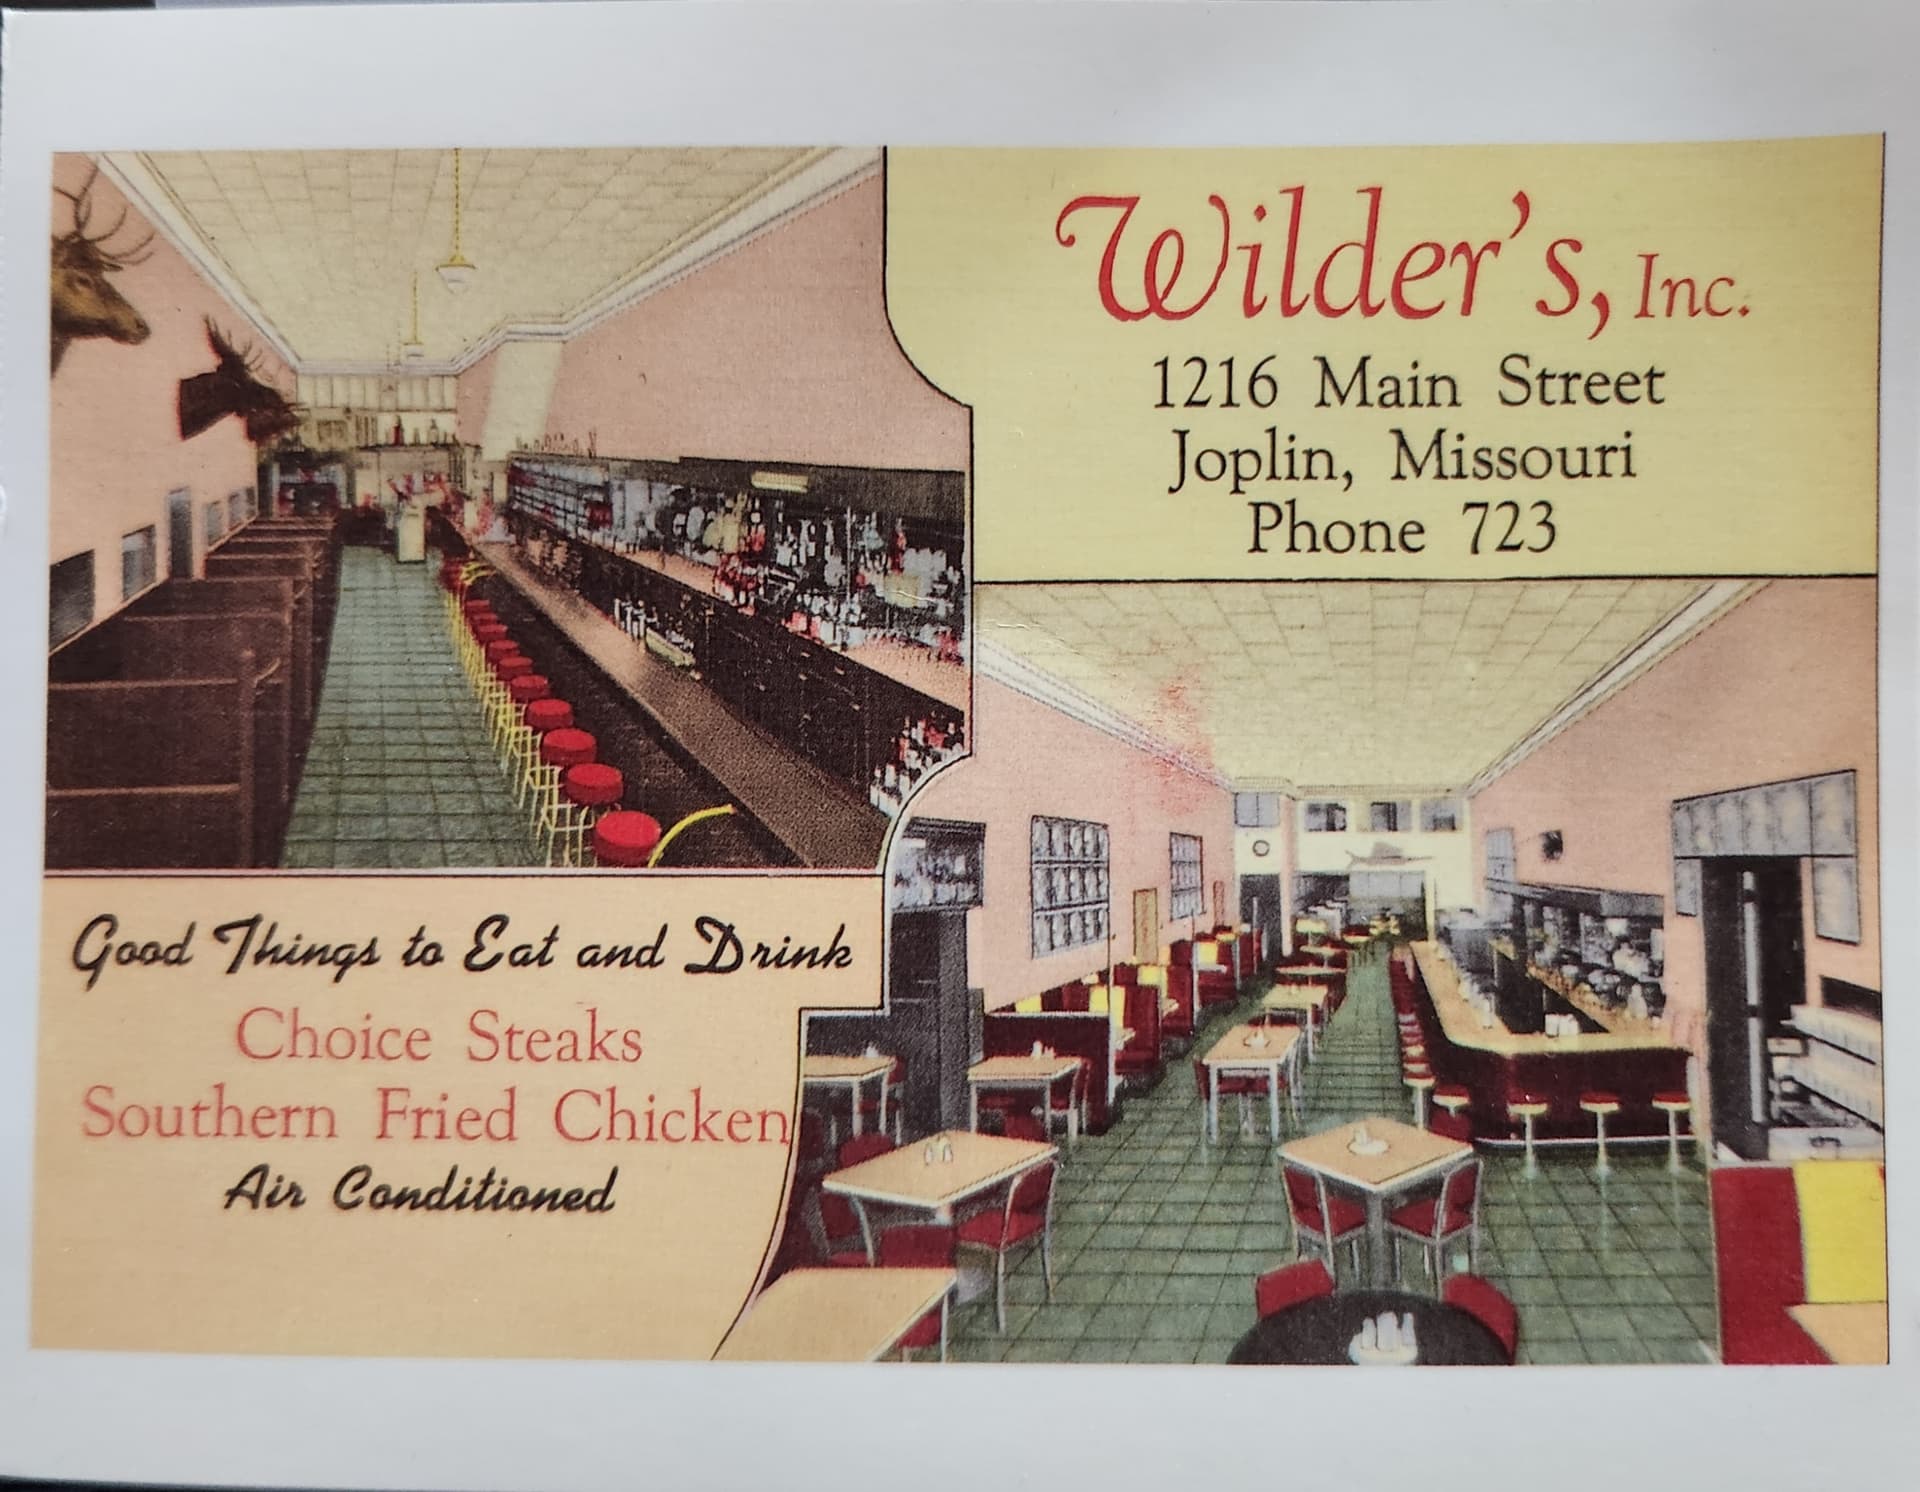 Wilder's, Inc.
1216 Main Street
Joplin, Missouri
Phone 723
Good Things to Eat and Drink
Choice Steaks
Southern Fried Chicken
Air Conditioned